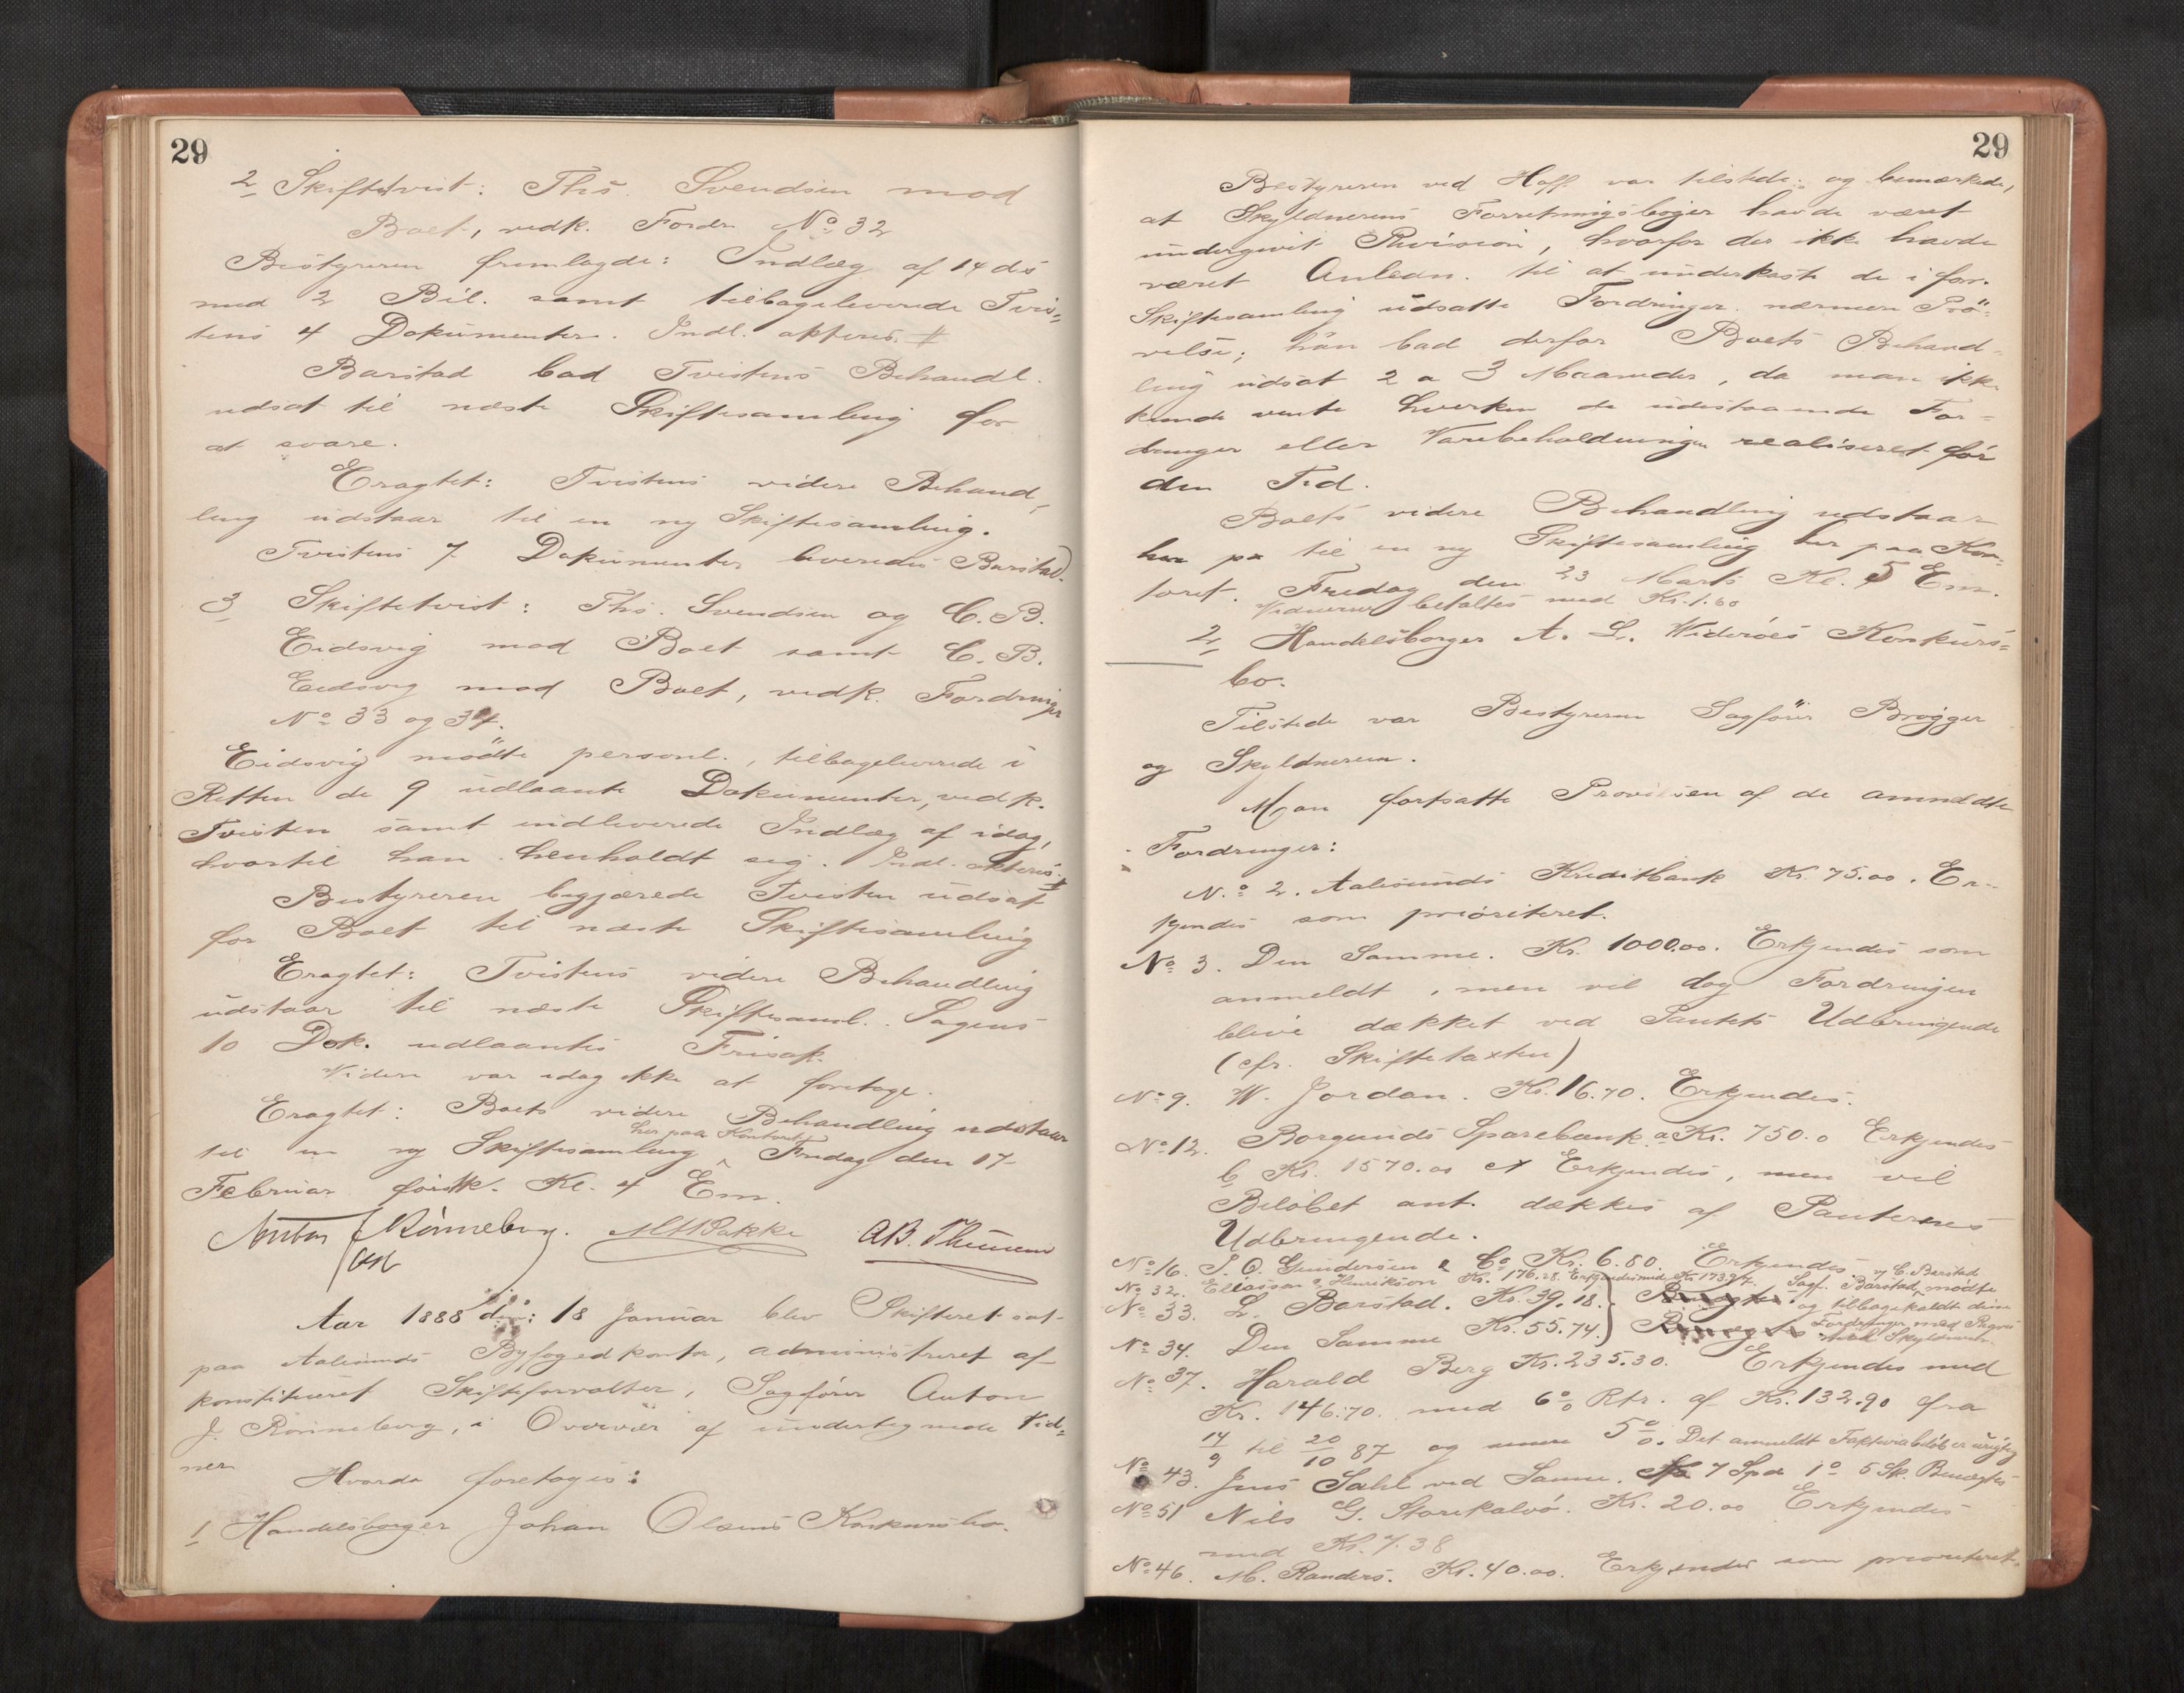 29
2 Skiftetvist: Ths. Svendsen mod
Boet, vedk. Fordr. No 32
Bestyreren fremlagde: Indlæg af 14 ds
med 2 Bil. samt tilbageleverede Tvis-
tens 4 Dokumenter. Indl. akteres #
Barstad bad Tvistens Behandl.
udsat til næste Skiftesamling for
at svare.
Eragtet: Tvistens videre Behand-
ling udstaar til en ny Skiftesamling.
Tvistens 7 Dokumenter leveredes Barstad.
3 Skiftetvist: Ths. Svendsen og C. B.
Eidsvig mod Boet samt C. B.
Eidsvig mod Boet, vedk. Fordringer
No 33 og 34.
Eidsvig mødte personl., tilbageleverede i
Retten de 9 udlaante Dokumenter, vedk.
Tvisten samt indleverede Indlæg af idag,
hvortil han henholdt sig. Indl. akteres. #
Bestyreren begjærede Tvisten udsat
for Boet til næste Skiftesamling
Eragtet: Tvistens videre Behandling
udstaar til næste Skiftesaml. Sagens
10 Dok. udlaantes Frisak.
Videre var idag ikke at foretage.
Eragtet: Boets videre Behandling udstaar
her paa Kontoret
til en ny Skiftesamling Fredag den 17
Februar førstk. Kl. 4 Em.
Anton J Rønneberg. A.B. Thinesen
cst
Aar 1888 den: 18 Januar blev Skifteret sat
paa Aalesunds Byfogedkontor, administreret af
konstitueret Skifteforvalter, Sagfører Anton
J. Rønneberg, i Overvær af undertegnede Vid-
ner
Hvorda foretoges:
1 Handelsborger Johan Olsens Konkursbo.
29
Bestyreren ved Hoff var tilstede og bemærkede,
at Skyldnerens Forretningsbøger havde været
undergivet Revision, hvorfor der ikke havde
været Anledn. til at underkaste de i forr.
Skiftesamling udsatte Fordringer nærmere Prø-
velse; han bad derfor Boets Behand-
ling udsat 2 a 3 Maaneder, da man ikke
kunde vente hverken de udestaaende For-
dringer eller Varebeholdningen realiseret før
den Tid.
Boets videre Behandling udstaar
her pa til en ny Skiftesamling her paa Kon-
toret. Fredag den 23 Marts Kl. 5 Em.
Vidnerne betaltes med Kr. 1.60
2 Handelsborger A. L. Widerøes Konkurs-
bo.
Tilstede var Bestyreren Sagfører Brøgger
og Skyldneren.
Man fortsatte Prøvelsen af de anmeldte
Fordringer:
No 2. Aalesunds Kreditbank Kr. 75.00. Er-
kjendes som prioriteret.
No 3. Den Samme. Kr. 1000.00. Erkjendes som
anmeldt, men vil dog Fordringen
blive dækket ved Pantets Udbringende
(cfr. Skiftetaxten)
No 9. W. Jordan. Kr. 16.70. Erkjendes.
No 12. Borgunds Sparebank a Kr. 750.0 Erkjendes
b Kr. 1570.00 Erkjendes, men vil
Beløbet ant. dækkes af Panternes
Udbringende.
No 16. S. O. Gundersen & Co Kr. 6.80. Erkjendes
No 32. Eliassen & Henriksen Kr. 176.28. Erkjendes med Kr. 173.97. Sagf. Barstad mødte
No 33. L. Barstad. Kr. 39.18. Benegtes og tilbagekaldt disse
No 34. Den Samme Kr. 55.74. Benegtes Fordringer med Regres mod Skyldneren
No 37. Harald Berg Kr. 235.30. Erkjendes med
Kr. 146.70. med 6% Rtr. af Kr. 132.90 fra
14/9 til 20/10 87 og senere 5%. Det anmeldt Fakturabeløb er urigtig
No 43. Jens Sahl ved Samme. 7 Spd 1 5 Sk. Benegtes
No 51 Nils G. Storekalvø. Kr. 20.00 Erkjendes
med Kr. 7.38
No 46. M. Randers. Kr. 40.00. Erkjendes som prioriteret.